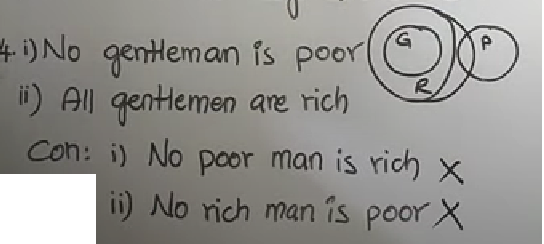 4. i) No gentleman is poor G P R
ii) All gentlemen are rich
Con: i) No poor man is rich X
ii) No rich man is poor X